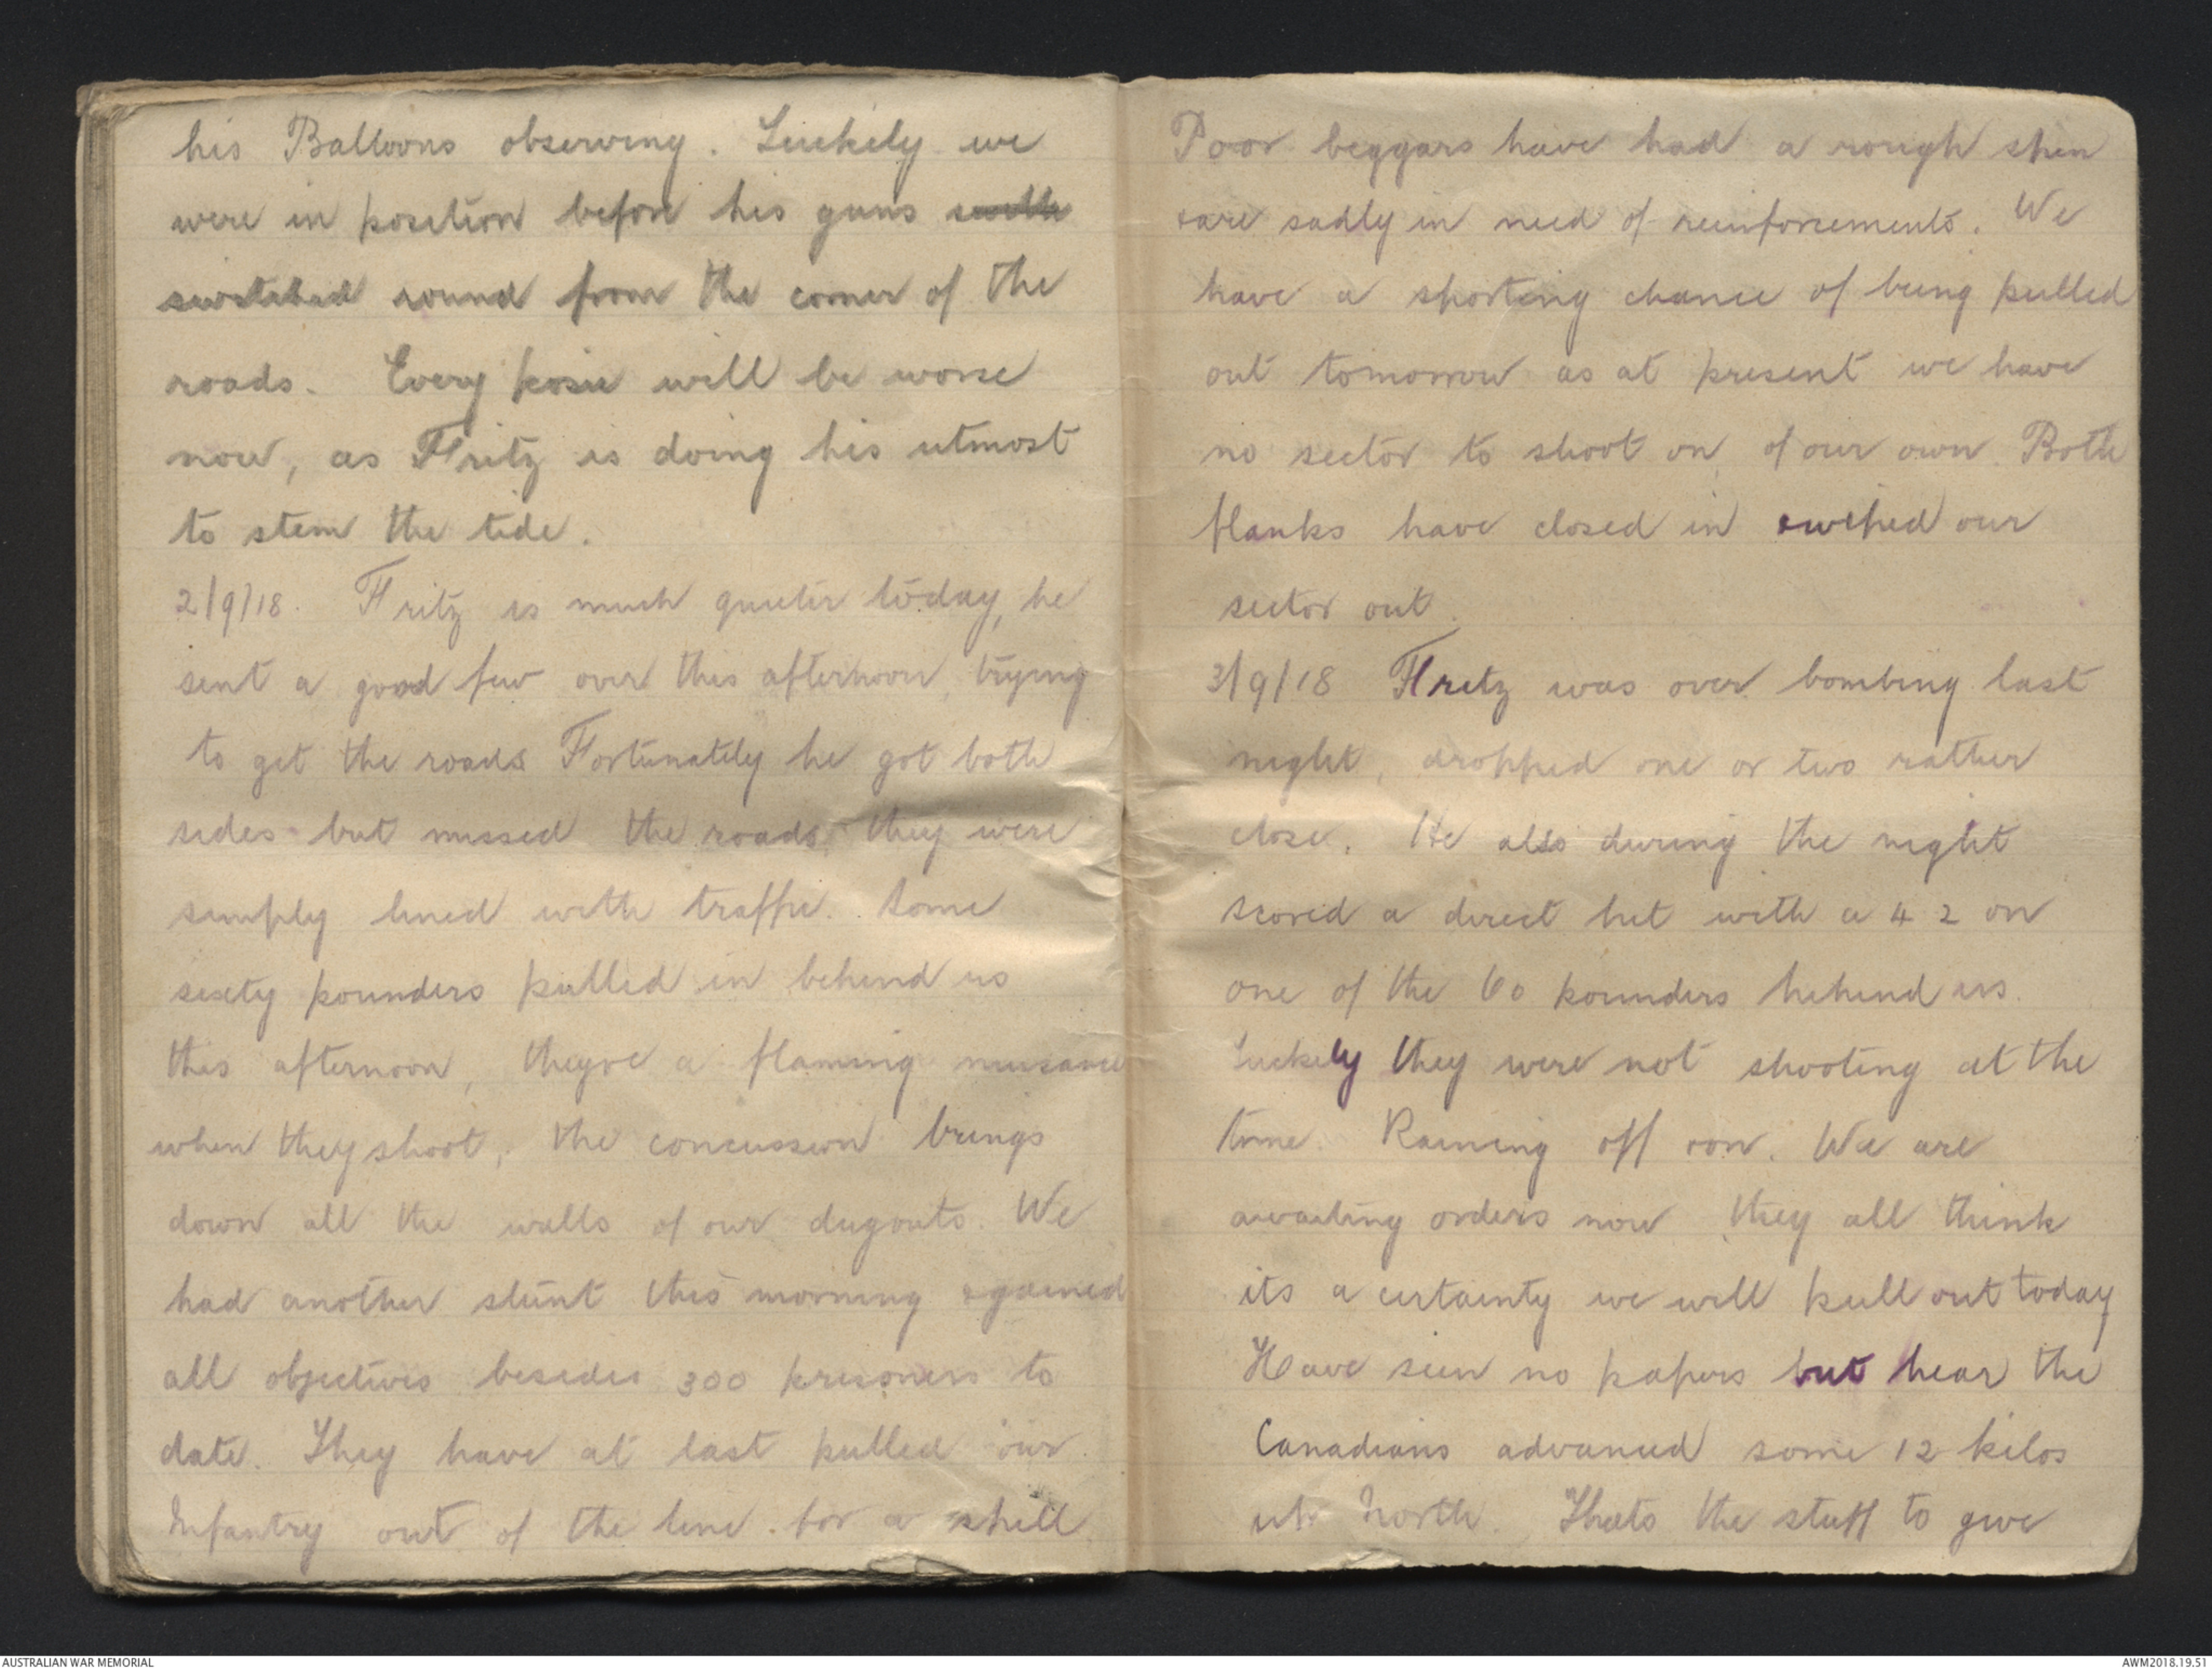 his Balloons observing. Luckily we
were in position before his guns
switched round from the corner of the
roads. Every posie will be worse
now, as Fritz is doing his utmost
to stem the tide.
2/9/18. Fritz is much quieter today, he
sent a good few over this afternoon, trying
to get the roads. Fortunately he got both
sides but missed the roads, they were
simply lined with traffic. Some
sixty pounders pulled in behind us
this afternoon, they're a flaming nuisance
when they shoot, the concussion brings
down all the walls of our dugouts. We
had another stunt this morning & gained
all objectives besides 300 prisoners to
date. They have at last pulled our
Infantry out of the line. for a spell
Poor beggars have had a rough spin
& are sadly in need of reinforcements. We
have a sporting chance of being pulled
out tomorrow as at present we have
no sector to shoot on, of our own. Both
flanks have closed in & wiped our
sector out.
3/9/18 Fritz was over bombing last
night, dropped one or two rather
close. He also during the night
scored a direct hit with a 4 2 on
one of the 60 pounders behind us.
Luckily they were not shooting at the
time. Raining off & on. We are
awaiting orders now, they all think
its a certainty we will pull out today
Have seen no papers but hear the
Canadians advanced some 12 kilos
up North. Thats the stuff to give
AUSTRALIAN WAR MEMORIAL
AWM2018.19.51